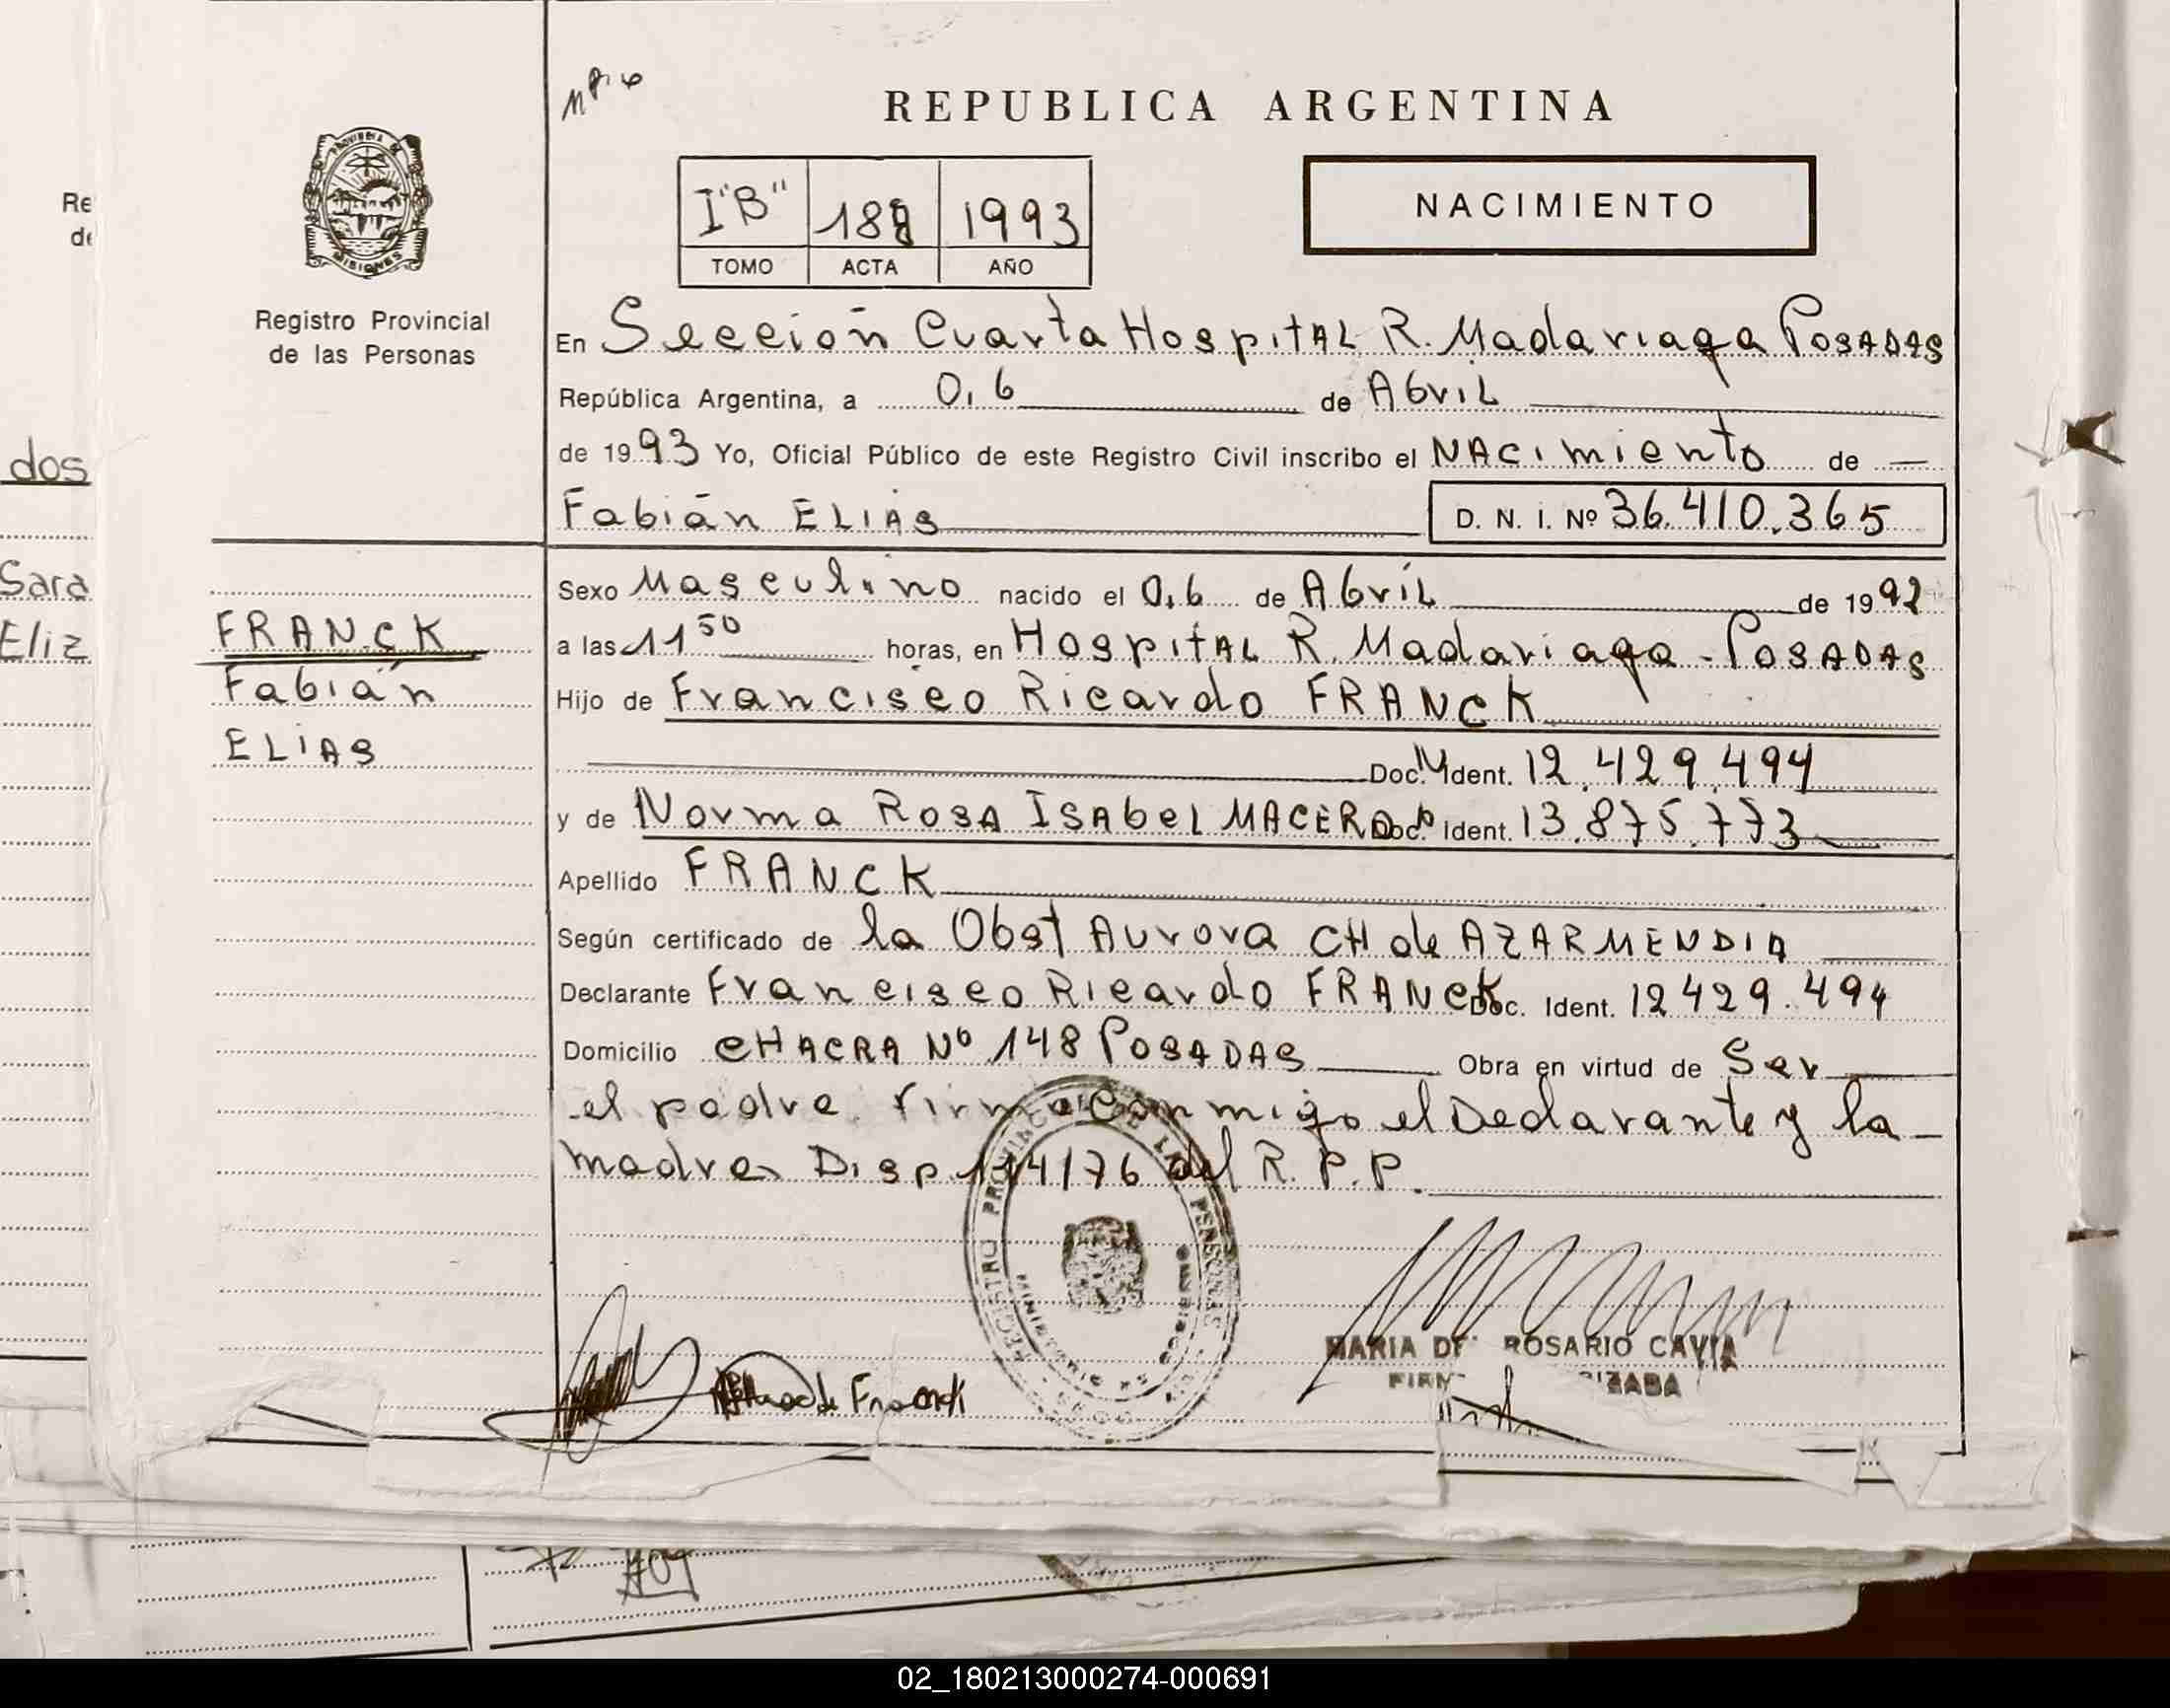 REPUBLICA ARGENTINA
PROVINCIA DE
MISIONES
Registro Provincial
de las Personas
I"B" 1993
TOMO ACTA AÑO
NACIMIENTO
En Sección Cuarta Hospital R. Madariaga Posadas
República Argentina, a 0,6 de Abril
de 1993 Yo, Oficial Público de este Registro Civil inscribo el Nacimiento de
Fabián ELIAS D. N. I. Nº 36.410.365
Sexo Masculino nacido el 0,6 de Abril de 1992
a las 11 50 horas, en Hospital R. Madariaga - Posadas
FRANCK
Fabián
ELIAS
Hijo de Francisco Ricardo FRANCK
Doc. Ident. 12.429.494
y de Norma Rosa Isabel Doc. Ident. 13.875.773
Apellido FRANCK
Según certificado de la Obst Aurora CH de AZARMENDIA
Declarante Francisco Ricardo FRANCK Doc. Ident. 12429.494
Domicilio CHACRA Nº 148 Posadas Obra en virtud de Ser
el padre. Firma conmigo el Declarante y la
madre, Disp. 114/76 del R.P.P.
REGISTRO PROVINCIAL DE LAS PERSONAS
MARIA DE ROSARIO CAVIA
dos
Sara
Eliz
02_180213000274-000691